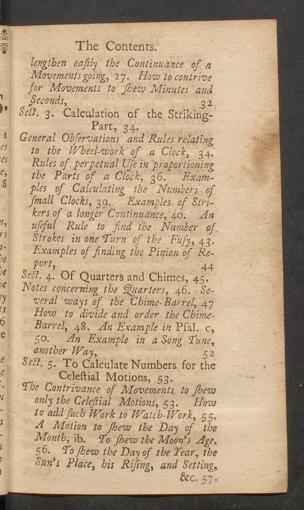 The Contents.
lengthen easily the Continuance of a
Movements going, 27. How to contrive
for Movements to shew Minutes and
Seconds, 32
Sect. 3. Calculation of the Striking-
Part, 34.
General Observations and Rules relating
to the Wheel-work of a Clock, 34.
Rules of perpetual Use in proportioning
the Parts of a Clock, 36. Exam-
ples of Calculating the Numbers of
small Clocks, 39. Examples of Stri-
kers of a longer Continuance, 40. An
useful Rule to find the Number of
Strokes in one Turn of the Fusy, 43.
Examples of finding the Pinion of Re-
port, 44
Sect. 4. Of Quarters and Chimes, 45.
Notes concerning the Quarters, 46. Se-
veral ways of the Chime-Barrel, 47
How to divide and order the Chime-
Barrel, 48. An Example in Psal. c,
50. An Example in a Song Tune,
another Way, 52
Sect. 5. To Calculate Numbers for the
Celestial Motions, 53.
The Contrivance of Movements to shew
only the Celestial Motions, 53. How
to add such Work to Watch-Work, 55.
A Motion to shew the Day of the
Month, ib. To shew the Moon's Age,
56. To shew the Day of the Year, the
Sun's Place, his Rising, and Setting,
&c. 57,